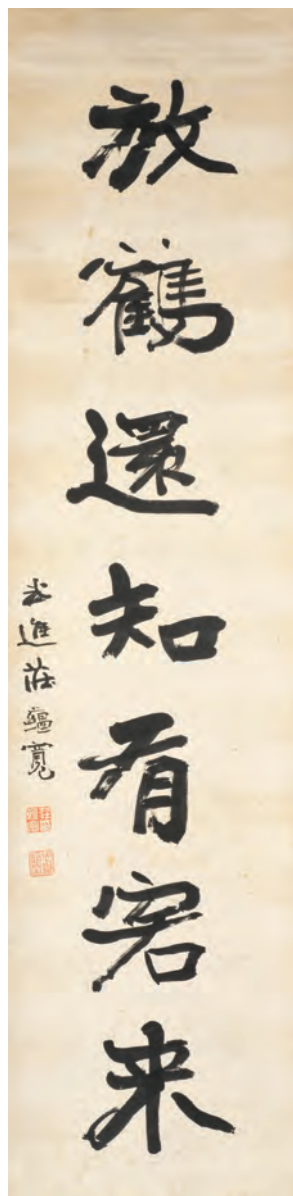 放鶴還知有客来
武進莊蘊寬